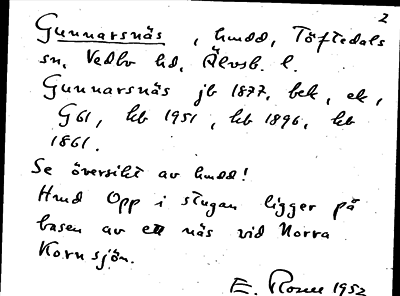 2
Gunnarsnäs, hmdd, Töftedals
sn, Vedbo hd, Älvsb. l.
Gunnarsnäs jb 1877, bek, ek,
G61, kb 1951, kb 1896, kb
1861.
Se översikt av hmdd!
Hmd Opp i stugan ligger på
basen av ett näs vid Norra
Kornsjön.
E. Rosell 1952